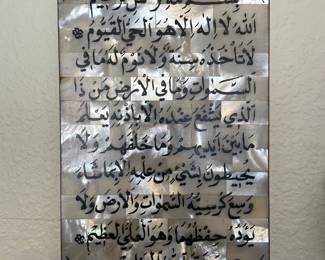 الله لا إله إلا هو الحي القيوم
لا تأخذه سنة ولا نوم له ما في
السموات وما في الأرض من ذا
الذي يشفع عنده إلا بإذنه يعلم
ما بين أيديهم وما خلفهم ولا
يحيطون بشيء من علمه إلا بما شاء
وسع كرسيه السموات والأرض ولا
يؤده حفظهما وهو العلي العظيم